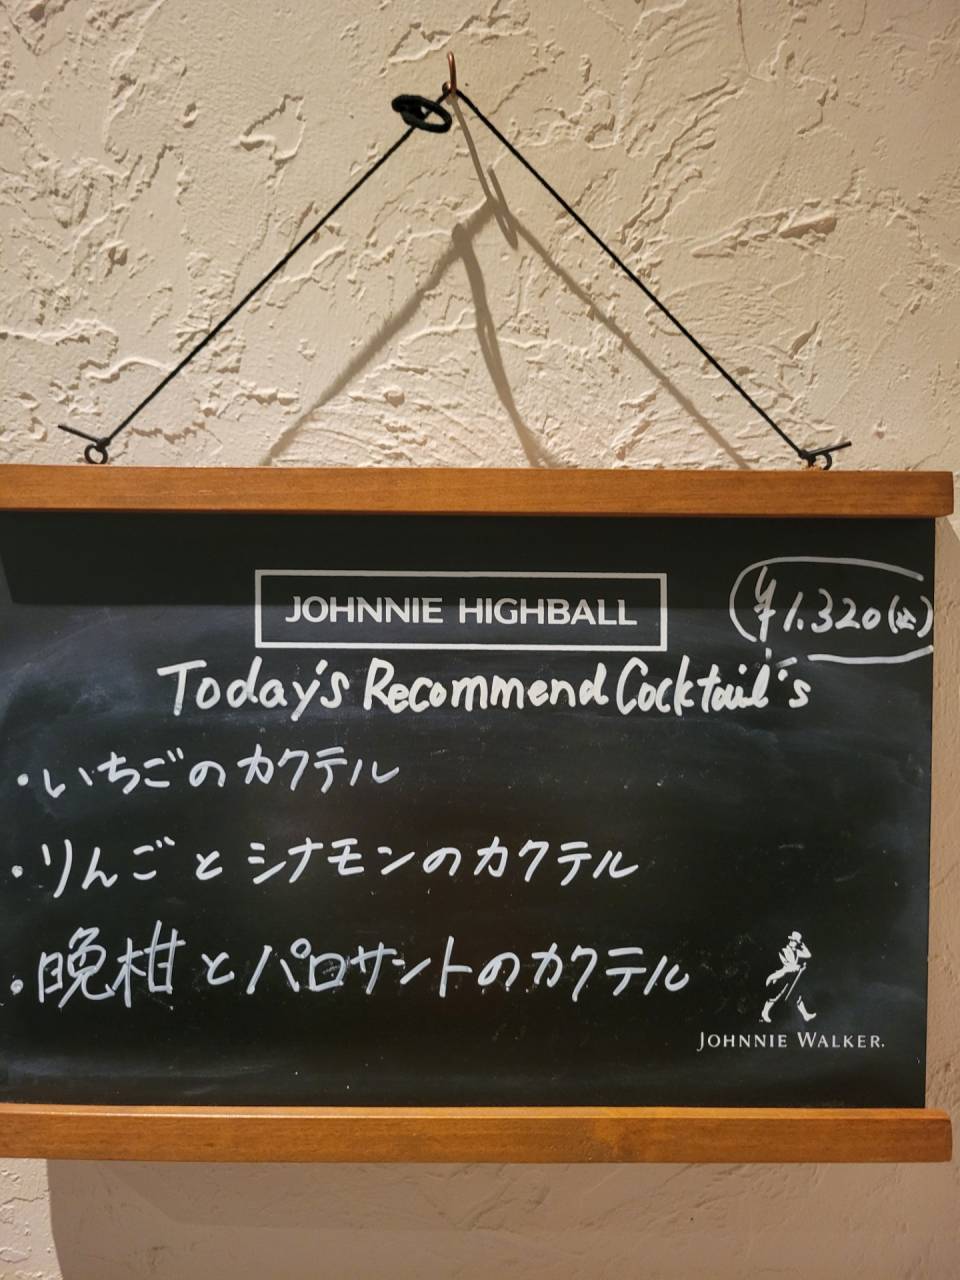 JOHNNIE HIGHBALL
¥1.320(込)
Today's Recommend Cocktail's
・いちごのカクテル
・りんごとシナモンのカクテル
・晩柑とパロサントのカクテル
JOHNNIE WALKER.